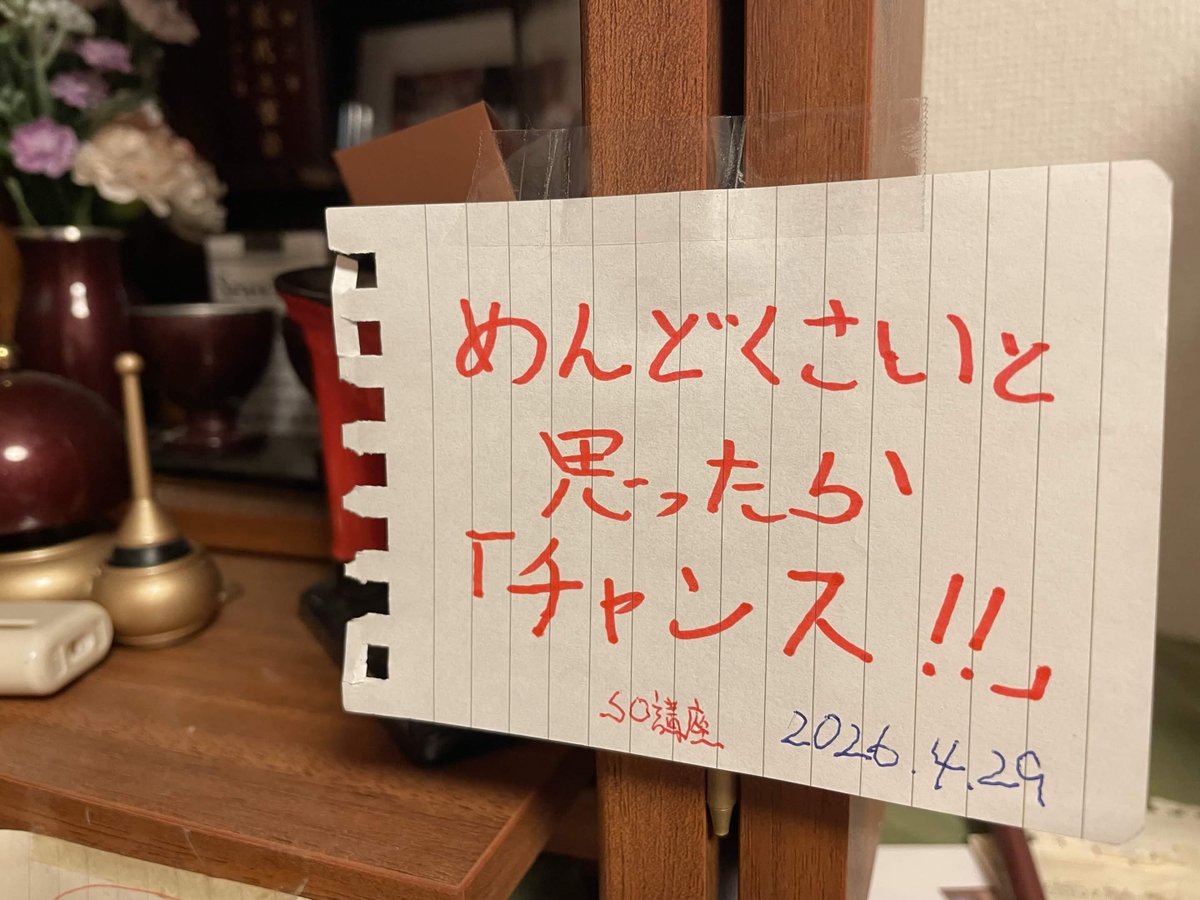 めんどくさいと
思ったら、
「チャンス!!」
SO講座 2026.4.29